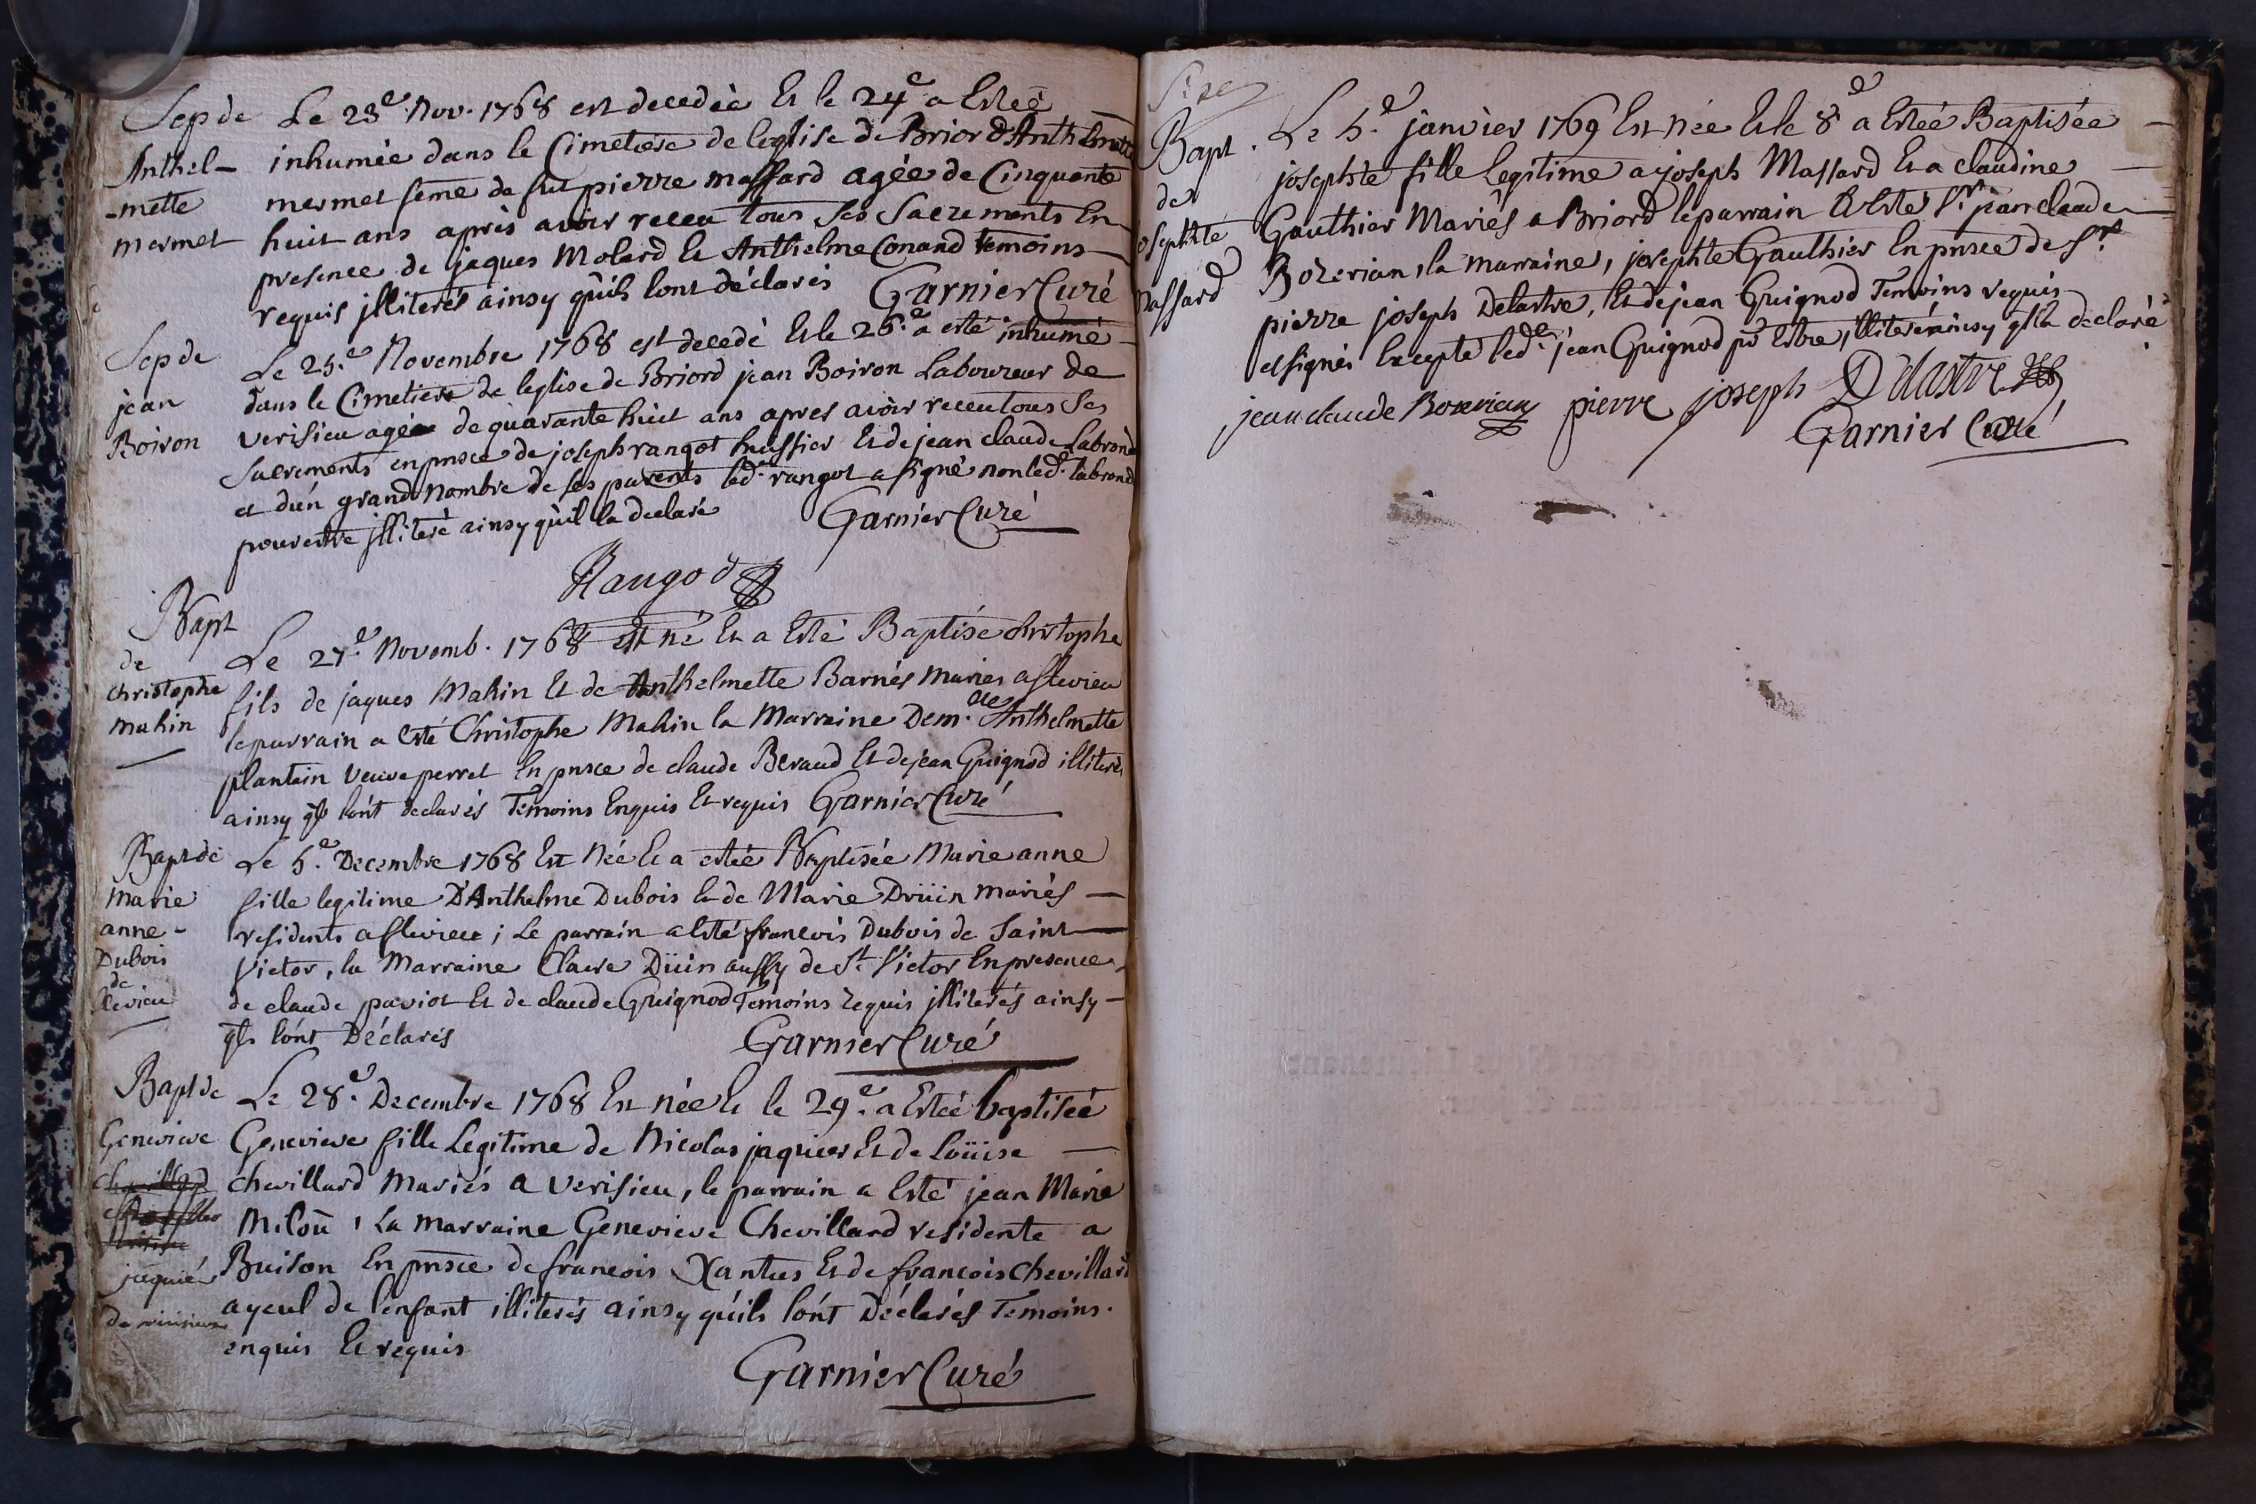 Sep de
Anthel-
-mette
mermet
Le 23e Nov. 1768 est decedèè Et le 24e a Estéé
inhumée dans le Cimetiere de leglise de Brior d'Anthelmette
mermet feme de fut pierre massard agée de Cinquante
huit ans après avoir receu tous Ses Sacrements En
presence de jaques Molard Et Anthelme Conand temoins
requis jlliterés ainsy quils lont déclarés Garnier Curé
Sep de
jean
Boiron
Le 25.e Novembre 1768 est decedé Et le 26.e a esté inhumé
dans le Cimetiere de leglise de Briord jean Boiron Laboureur de
verisieu agée de quarante huit ans apres avoir receu tous Ses
Sacrements en pnsce de joseph rangot huissier Et de jean claude Labrond
et d'un grand Nombre de ses parents led. rangot a signé non led. labrond
pour estre jlliteré ainsy qu'il la declaré Garnier Curé
Rangod
Bapt
de
christophe
Makin
Le 27.e Novemb. 1768 est né Et a Esté Baptisé christophe
fils de jaques Makin Et de Anthelmette Barnés Mariés a flevieu
le parrain a Esté Christophe Makin la Marraine Dem.lle Anthelmette
plantin veuve perret En pnsce de claude Beraud Et de jean Guignod illiterés
ainsy qls lońt declarés Temoins Enquis Et requis Garnier Curé
Bapt de
Marie
anne-
Dubois
de
flevieu
Le 5.e Decembre 1768 Est Née Et a estéé Baptisée Marie anne
fille legitime D'Anthelme Dubois Et de Marie Drüin mariés
residents a flevieu; Le parrain a Esté francois Dubois de Saint
Victor, la Marraine Claire Düin aussy de St Victor En presence
de claude paviot Et de claude Guignod Temoins requis jlliterés ainsy
qls lońt Déclarés Garnier Curé
Bapt de
Genevieve
jaquier
Le 28.e Decembre 1768 Est née Et le 29.e a Estéé baptiséé
Genevieve fille Legitime de Nicolas jaquier Et de Loüise
chevillard Mariés a Verisieu, le parrain a Esté jean Marie
Miloū, La marraine Genevieve Chevillard residente a
Buison En pnsce de francois Xantus Et de francois chevillard
ayeul de l'enfant illiterés ainsy qu'ils lońt Déclarés Temoins.
enquis Et requis
Garnier Curé
Bapt.
de
josephte
Massard
Le 5.e janvier 1769 Est née Et le 8e a Estéé Baptisée
josephte fille Legitime a joseph Massard Et a claudine
Gauthier Mariés a Briord le parrain A Esté Sr. jean claude
Bozerian, la marraine, josephte Gauthier En pnsce de Sr.
pierre joseph Delastre, Et de jean Guignod Temoins requis
et signés Excepté led. jean Guignod pr Estre jlliteré ainsy qlla declaré
jean claude Bozerian pierre joseph Delastre
Garnier Curé